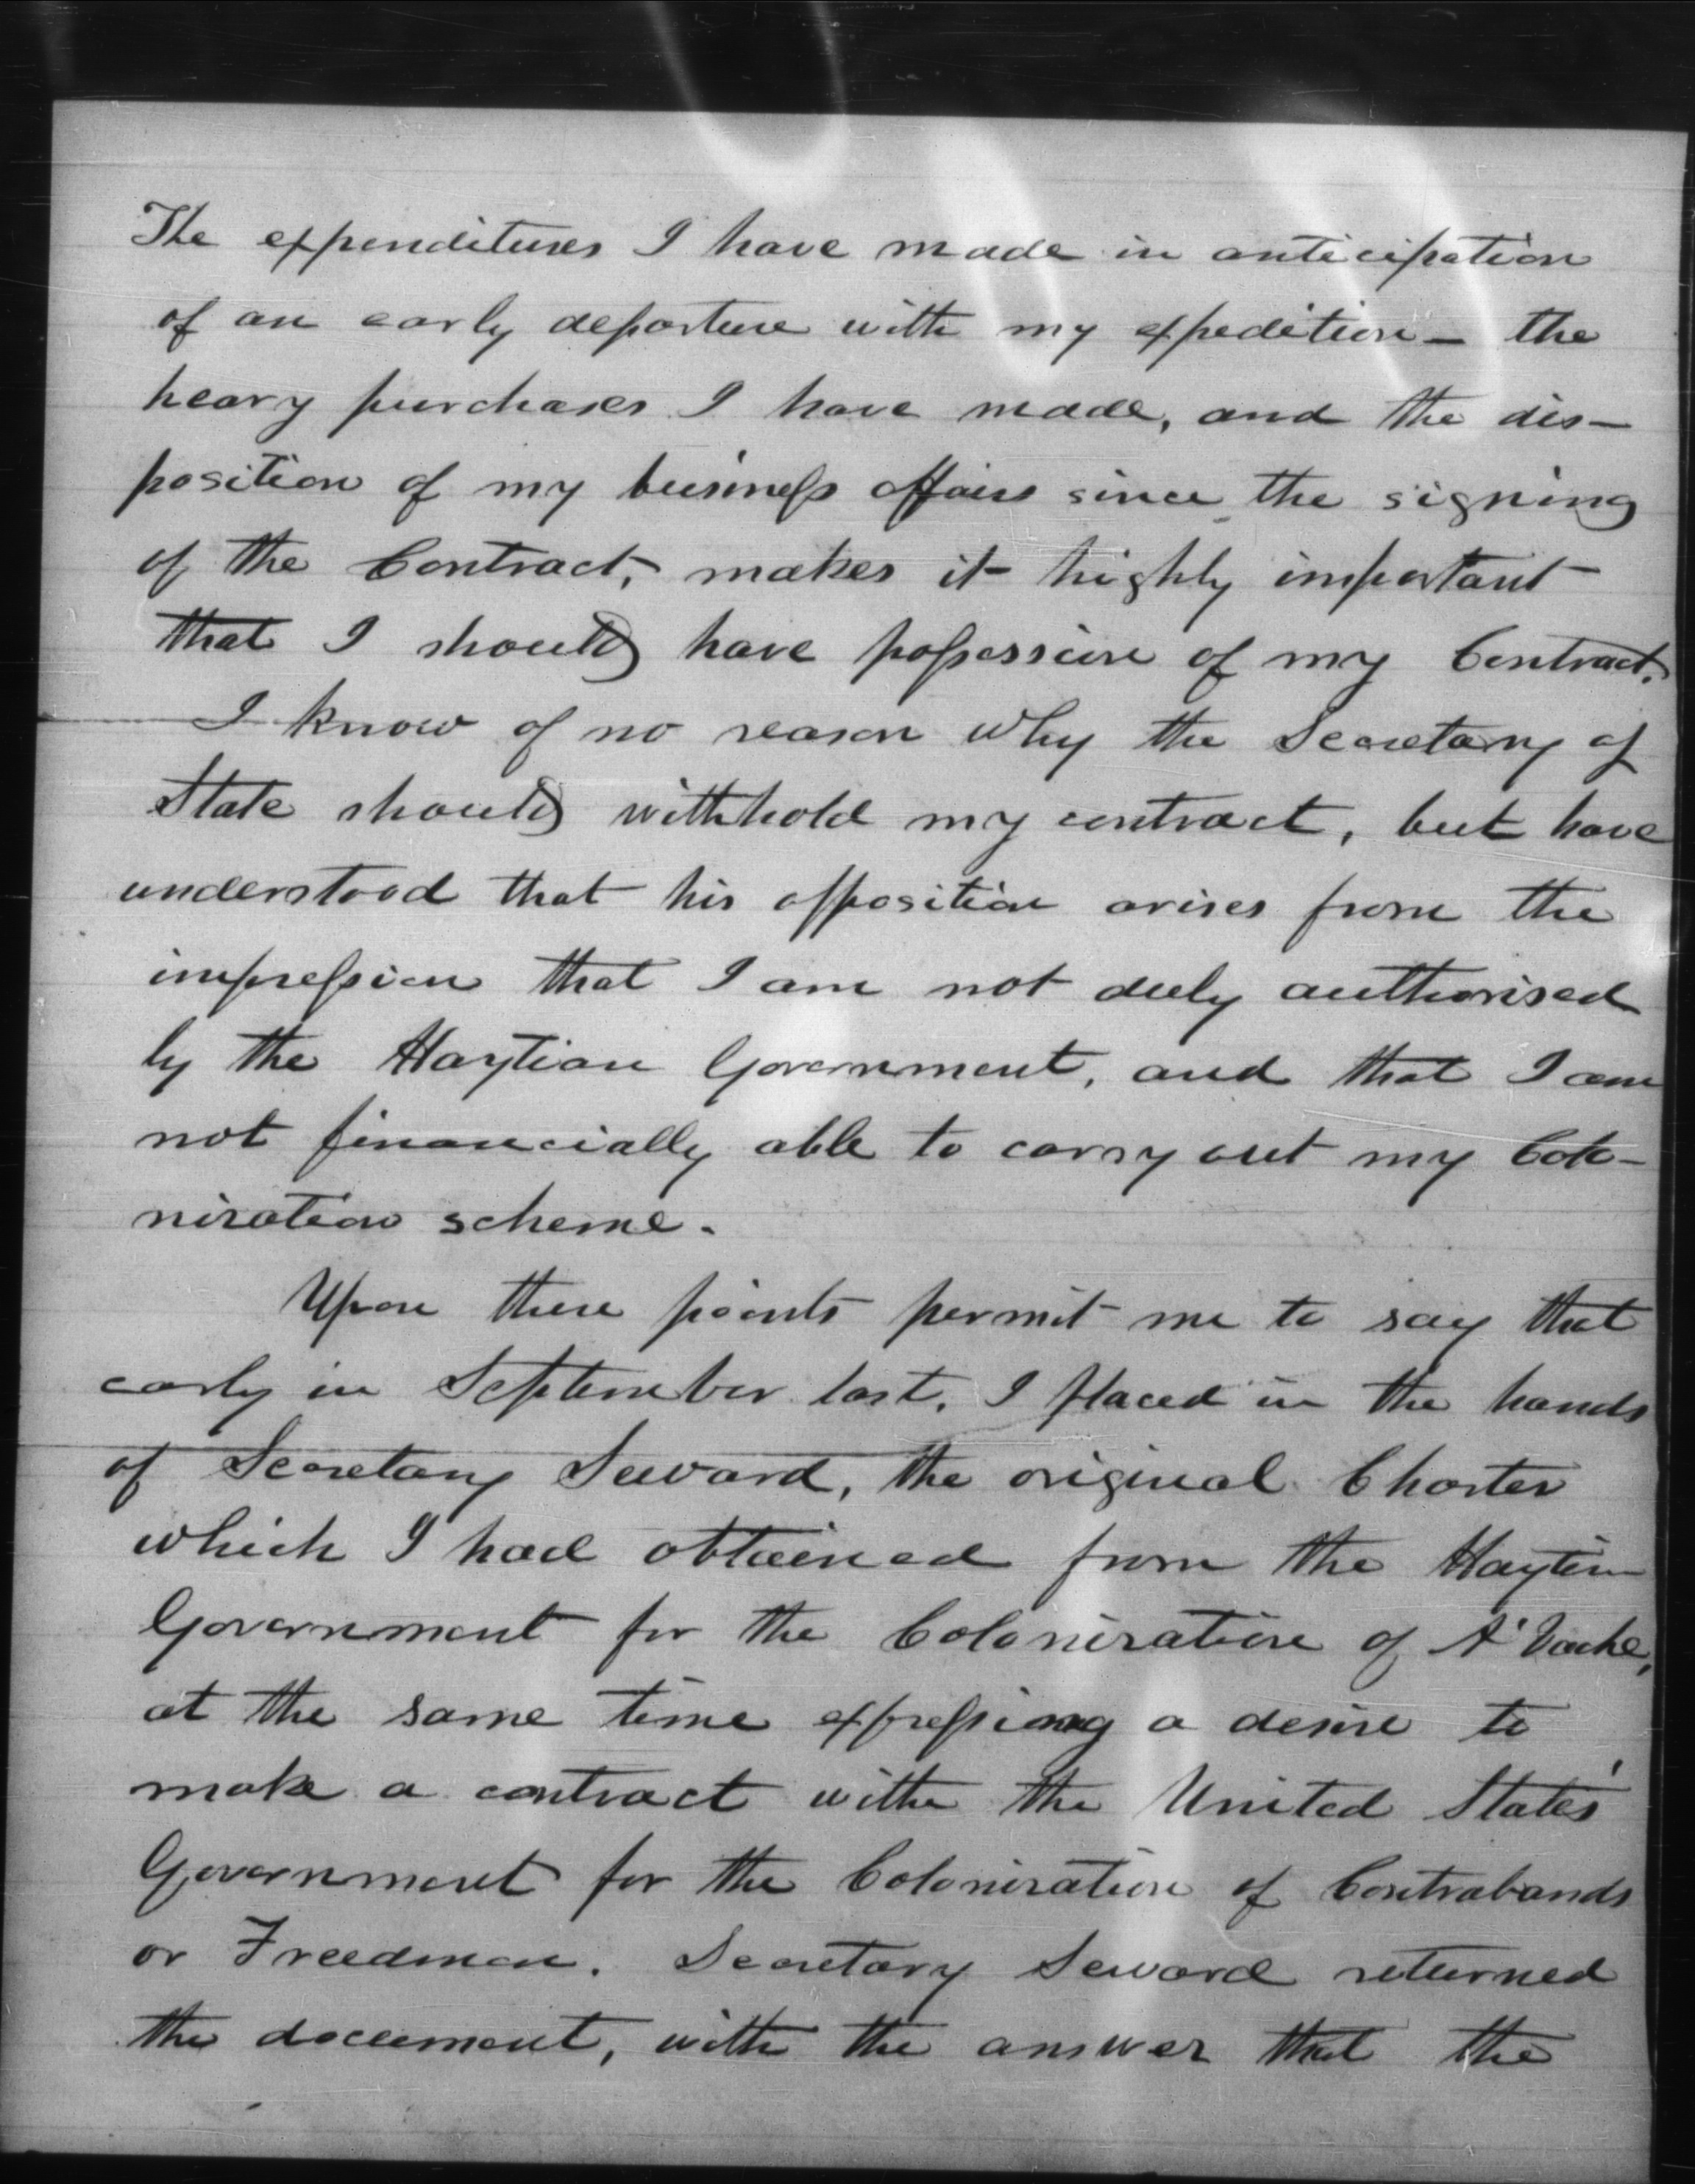 The expenditures I have made in anticipation
of an early departure with my expedition – the
heavy purchases I have made, and the dis–
position of my business affairs since the signing
of the Contract, makes it highly important
that I should have possession of my Contract.
I know of no reason why the Secretary of
State should withhold my contract, but have
understood that his opposition arises from the
impression that I am not duly authorised
by the Haytian Government, and that I am
not financially able to carry out my Colo–
nization scheme.
Upon these points permit me to say that
early in September last, I placed in the hands
of Secretary Seward, the original Charter
which I had obtained from the Haytian
Government for the Colonization of A'Vache,
at the same time expressing a desire to
make a contract with the United States'
Government for the Colonization of Contrabands
or Freedmen. Secretary Seward returned
the document, with the answer that the